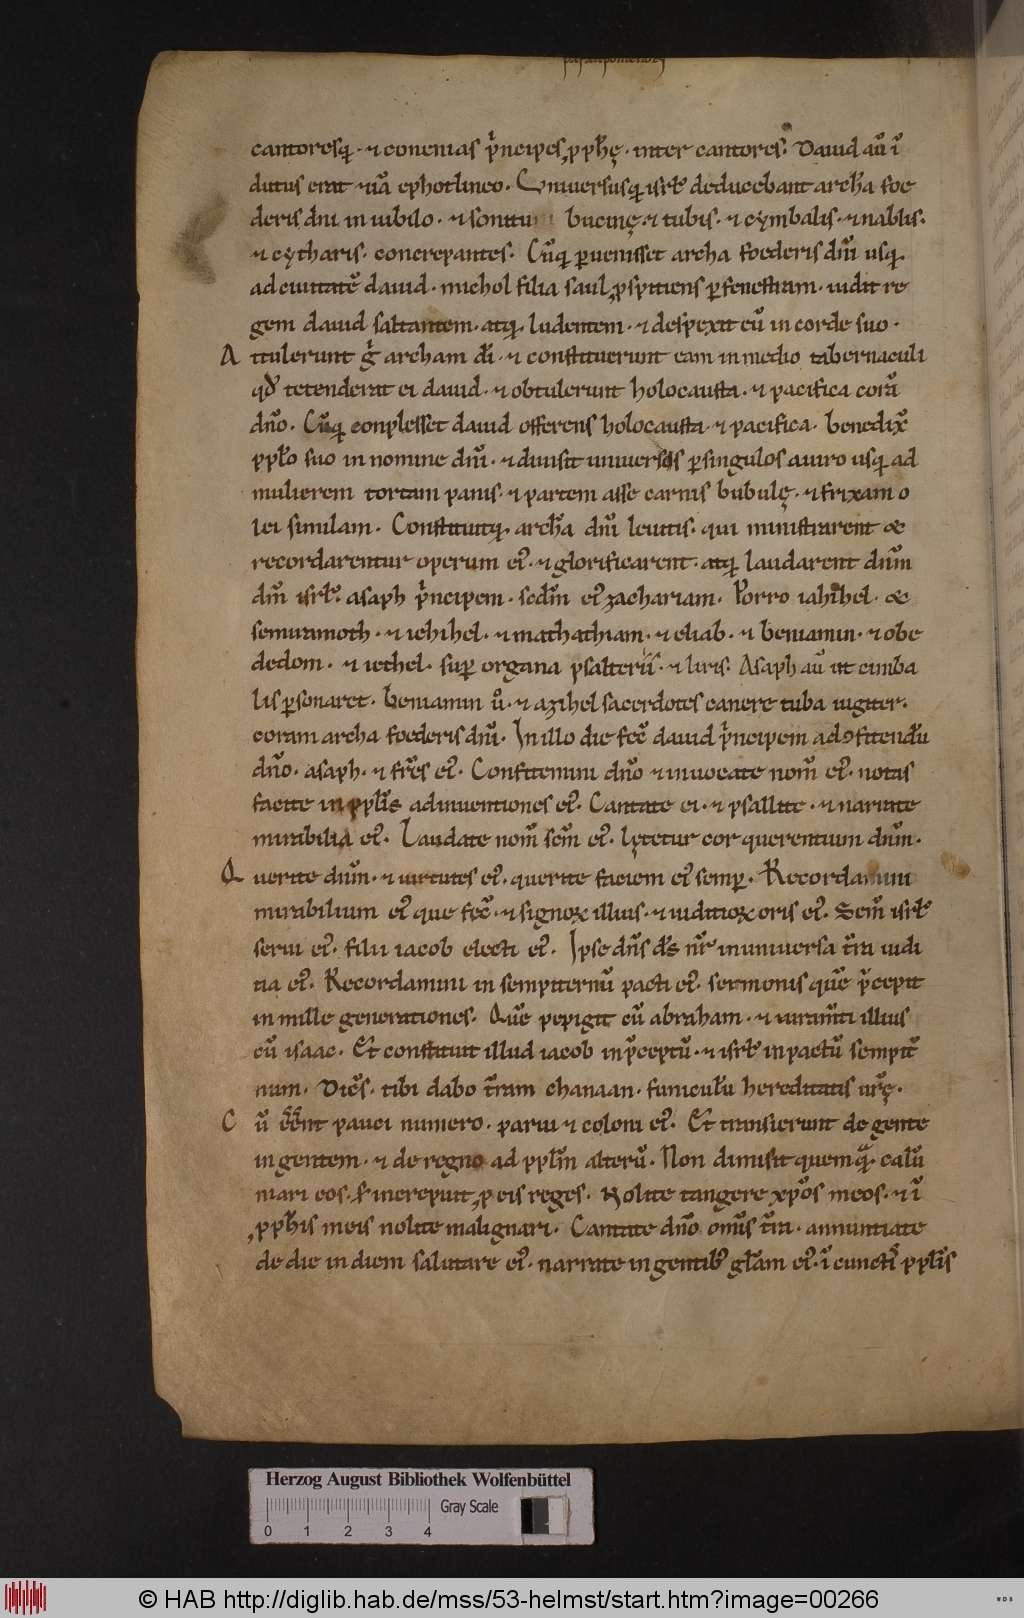 paralipomenon
cantoresq; · ⁊ conenias pͥncipes ꝓph̄ę · inter cantores. Dauid aū ī
dutus erat ⁊iā ephot lineo. Uniuersusq; isrł deducebant archā foe
deris dn̄i in iubilo · ⁊ sonitu bucinę · ⁊ tubis · ⁊ cymbalis · ⁊ nablis ·
⁊ cytharis · concrepantes. Cūq; ꝑuenisset archa foederis dn̄i usq;
ad ciuitatē dauid · michol filia saul ꝓspitiens ꝑ fenestram · uidit re
gem dauid saltantem · atq; ludentem · ⁊ despexit eū in corde suo ·
A ttulerunt gͥ archam dī · ⁊ constituerunt eam in medio tabernaculi
qd̄ tetenderat ei dauid · ⁊ obtulerunt holocausta · ⁊ pacifica corā
dn̄o. Cūq; conplesset dauid offerens holocausta · ⁊ pacifica · benedix̄
ppło suo in nomine dn̄i · ⁊ diuisit uniuersis ꝑ singulos a uiro usq; ad
mulierem tortam panis · ⁊ partem asse carnis bubulę · ⁊ frixam o
lei similam. Constituitq; archā dn̄i leuitis · qui ministrarent &
recordarentur operum eī · ⁊ glorificarent · atq; laudarent dn̄m
dm̄ isrł. asaph pͥncipem · sedm̄ eī zachariam. Porro iahihel · &
semiramoth · ⁊ iehihel · ⁊ mathathiam · ⁊ eliab · ⁊ beniamin · ⁊ obe
dedom · ⁊ iethel · suꝑ organa psalterii · ⁊ liris. Asaph aū ut cimba
lis ꝑsonaret. beniamin uͦ · ⁊ azihel sacerdotes canere tuba iugiter ·
coram archa foederis dn̄i. In illo die fec̄ dauid pͥncipem ad ꝯfitendū
dn̄o · asaph · ⁊ fr̄es eī. Confitemini dn̄o ⁊ inuocate nom̄ eī · notas
facite in ppłis adinuentiones eī. Cantate ei · ⁊ psallite · ⁊ narrate
mirabilia eī. Laudate nom̄ scm̄ eī · lętetur cor querentium dn̄m ·
Q uerite dn̄m · ⁊ uirtutes eī · querite faciem eī semꝑ. Recordamini
mirabilium eī que fec̄ · ⁊ signoꝝ illius · ⁊ iuditioꝝ oris eī. Sem̄ isrł
serui eī · filii iacob electi eī. Ipse dn̄s ds̄ nr̄ in uniuersa tr̄a iudi
tia eī. Recordamini in sempiternū pacti eī · sermonis quē p̄cepit
in mille generationes. Quē pepigit cū abraham · ⁊ iuram̄ti illius
cū isaac. Et constituit illud iacob in p̄ceptū · ⁊ isrł in pactū sempit̄
num. Dicēs. tibi dabo tr̄am chanaan · funiculū hereditatis ur̄ę ·
C ū ēēnt pauci numero · parui ⁊ coloni eī. Et transierunt de gente
in gentem · ⁊ de regno ad ppłm alterū. Non dimisit quemqͣ calū
niari eos · s; increpuit ꝓ eis reges. Nolite tangere xp̄os meos · ⁊ ī
ꝓph̄is meis nolite malignari. Cantate dn̄o om̄s tr̄a · annuntiate
de die in diem salutare eī · narrate in gentib; glam̄ eī · ī cunctis ppłis
Herzog August Bibliothek Wolfenbüttel
Gray Scale
0 1 2 3 4
© HAB http://diglib.hab.de/mss/53-helmst/start.htm?image=00266